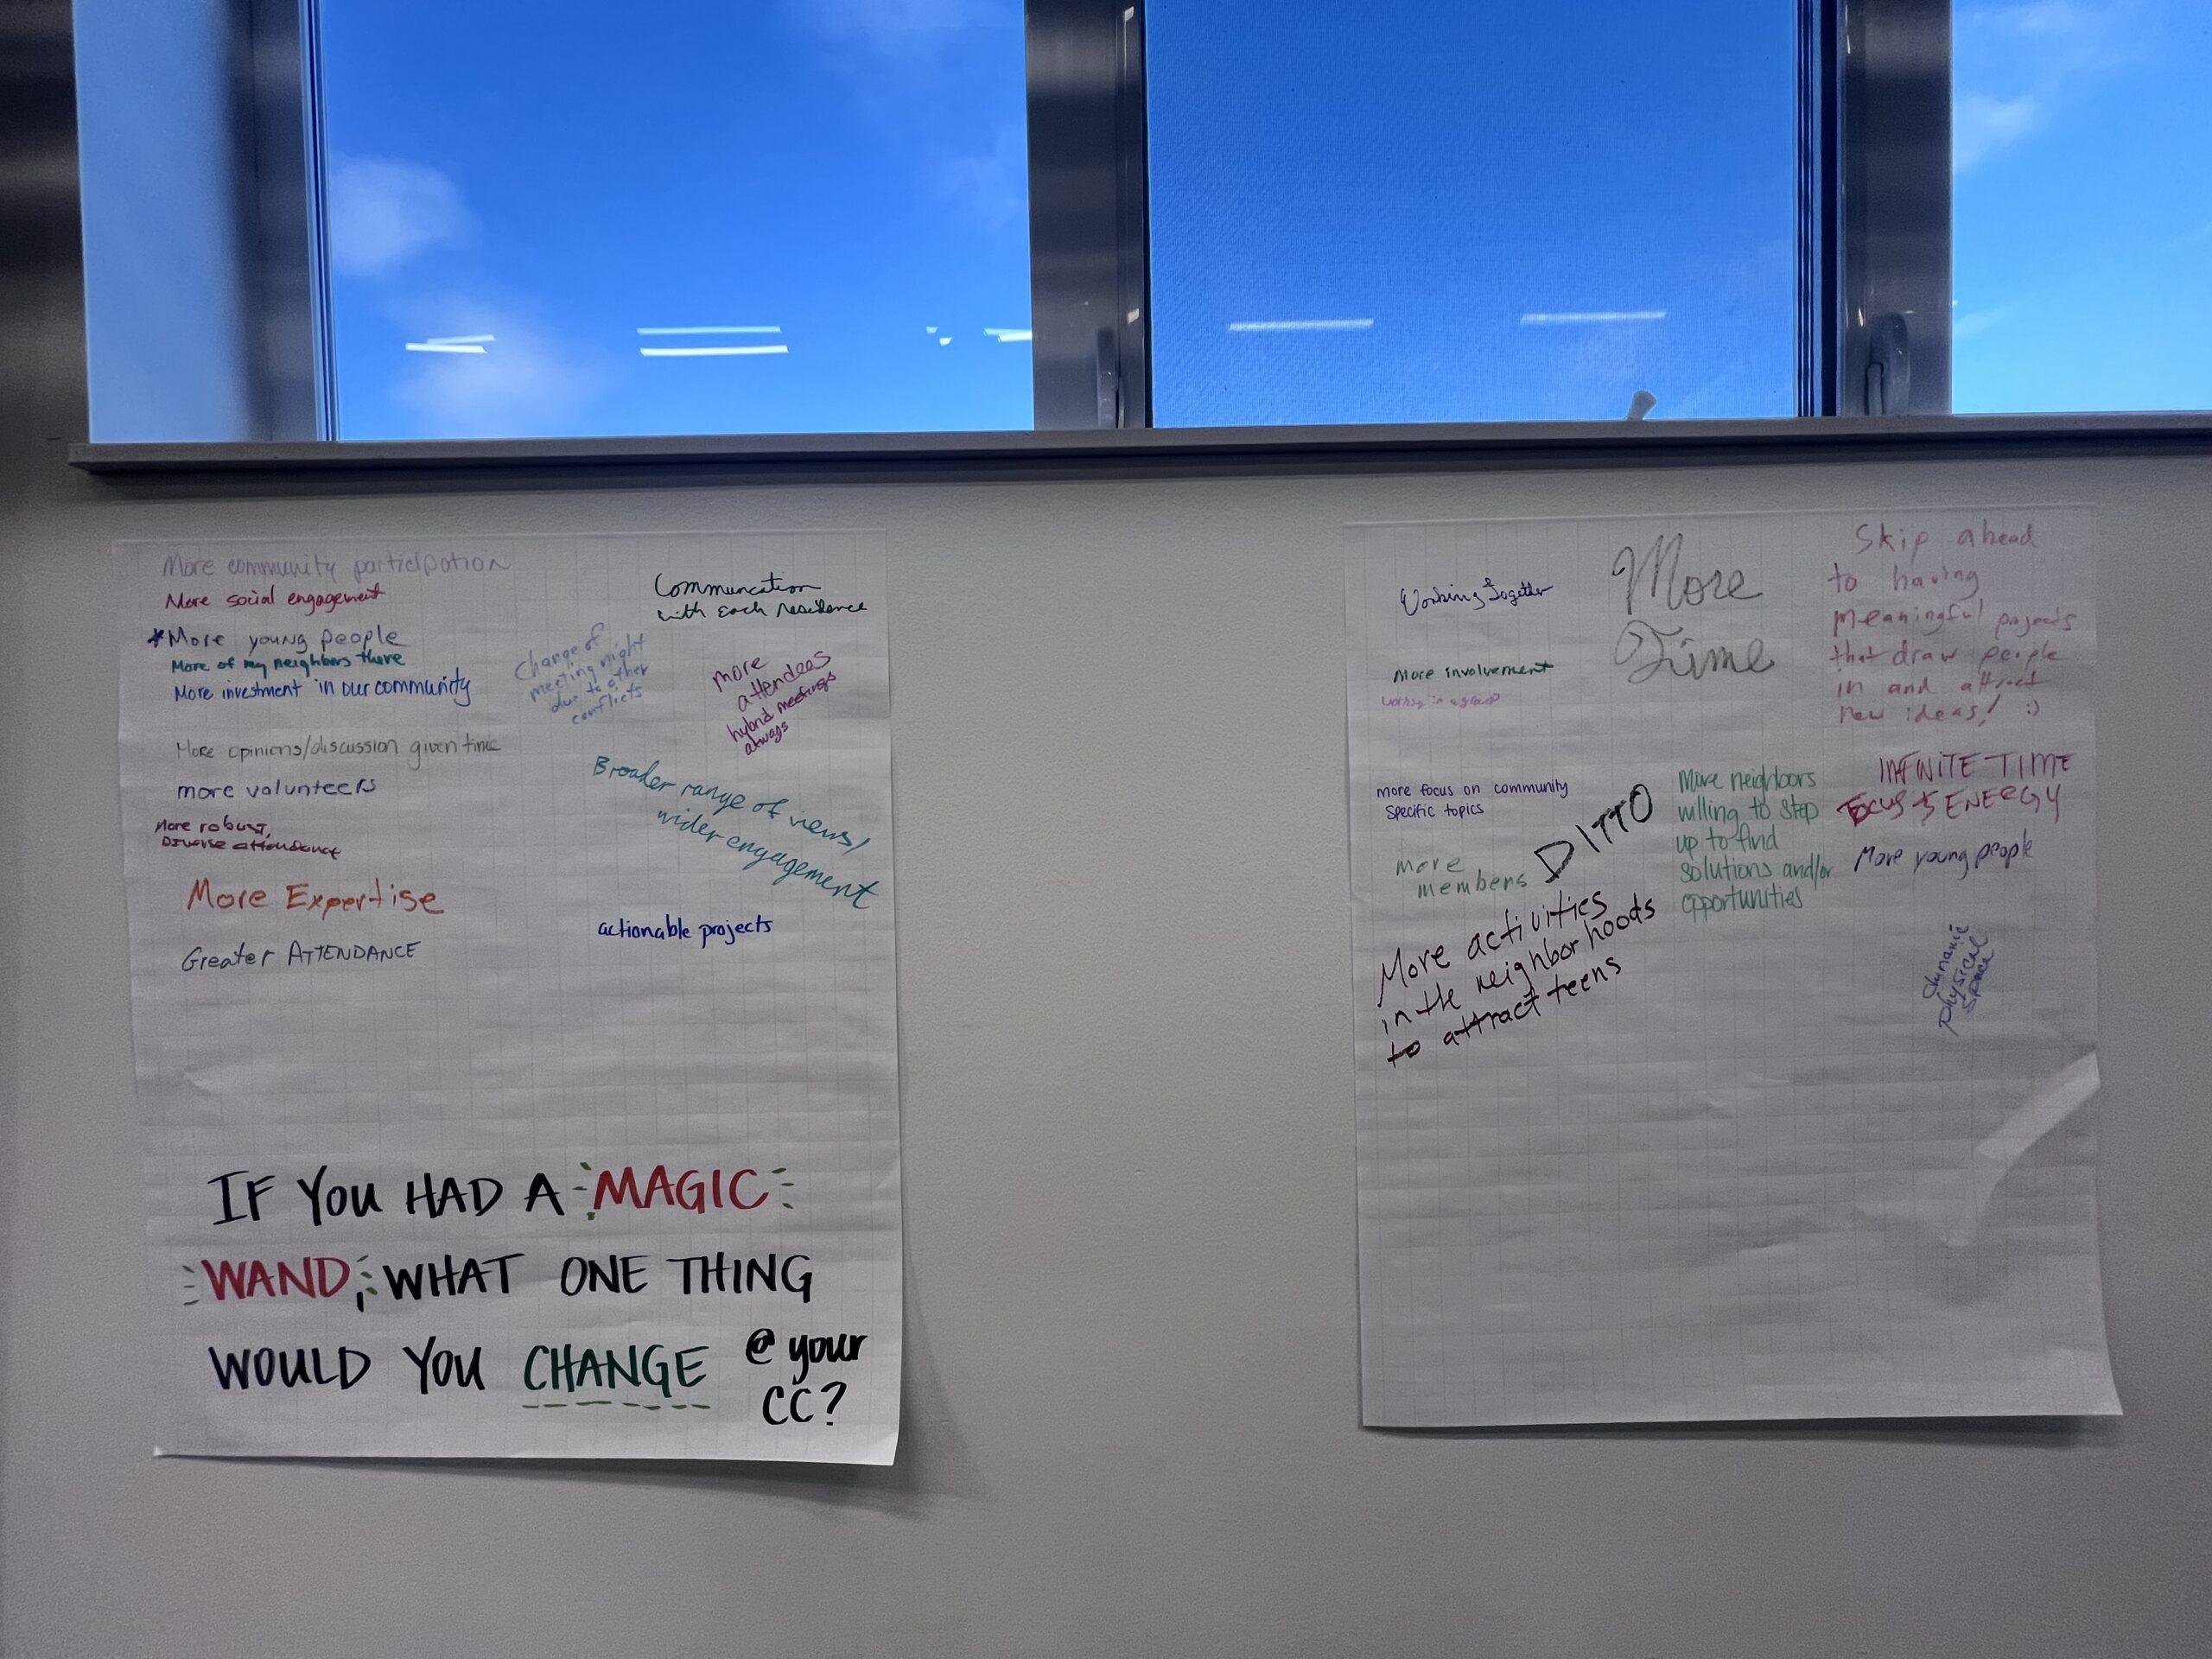 More community participation
More social engagement
*More young people
More of my neighbors there
More investment in our community
More opinions/discussion given time
more volunteers
More robust,
Diverse attendance
More Expertise
Greater ATTENDANCE
Communcation
with each residence
Change of
meeting night
due to other
conflicts
more
attendees
hybrid meetings
always
Broader range of views/
wider engagement
actionable projects
IF YOU HAD A MAGIC
WAND, WHAT ONE THING
WOULD YOU CHANGE @ your
CC?
Working Together
More involvement
working in a group
more focus on community
specific topics
more
members
DITTO
More activities
in the neighborhoods
to attract teens
More
Time
More neighbors
willing to step
up to find
solutions and/or
opportunities
Skip ahead
to having
meaningful projects
that draw people
in and attract
new ideas! :)
INFINITE TIME
FOCUS & ENERGY
More young people
dynamic
physical
space